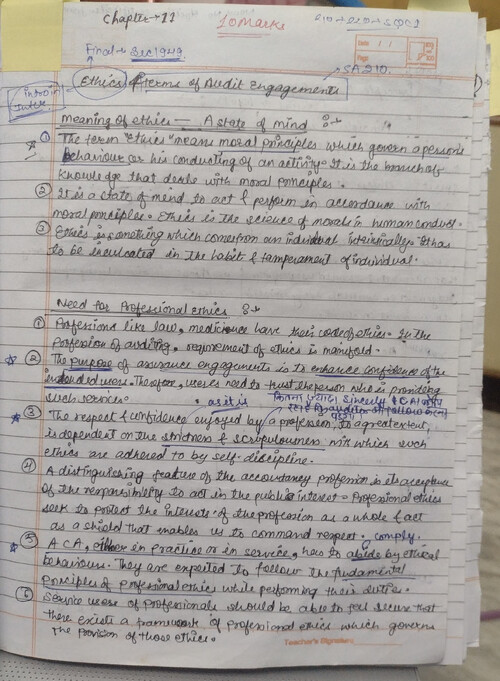 Chapter → 11
10 Marks
210 → 220 → SQC1
Final → SQC1 949
Date
Page
SA 210.
intro in Inter
Ethics & terms of Audit Engagements
Meaning of ethics — A state of mind :→
① The term "Ethics" means moral principles which govern a person's
behaviour or his conducting of an activity. It is the branch of
knowledge that deals with moral principles.
② It is a state of mind to act & perform in accordance with
moral principles. Ethics is the science of morals in human conduct.
③ Ethics is something which comes from an individual intrinsically. It has
to be inculcated in the habit & temperament of individual.
Need for Professional ethics :→
① Professions like law, medicine have their code of ethics. In the
Profession of auditing, requirement of ethics is manifold.
② The purpose of assurance engagements is to enhance confidence of the
intended users. Therefore, users need to trust the person who is providing
such services.
as it is
कितना ज़्यादा sincerely CA
auditor को follow करना
③ The respect & confidence enjoyed by a profession, to a great extent,
is dependent on the strictness & scrupulousness with which such
ethics are adhered to by self-discipline.
4 A distinguishing feature of the accountancy profession is its acceptance
of the responsibility to act in the public interest. Professional ethics
seek to protect the interests of the profession as a whole & act
as a shield that enables us to command respect.
comply.
⑤ A CA, either in practice or in service, has to abide by ethical
behaviours. They are expected to follow the fundamental
principles of professional ethics while performing their duties.
⑥ Service users of professionals should be able to feel secure that
there exists a framework of professional ethics which governs
the provision of those ethics.
Teacher's Signature